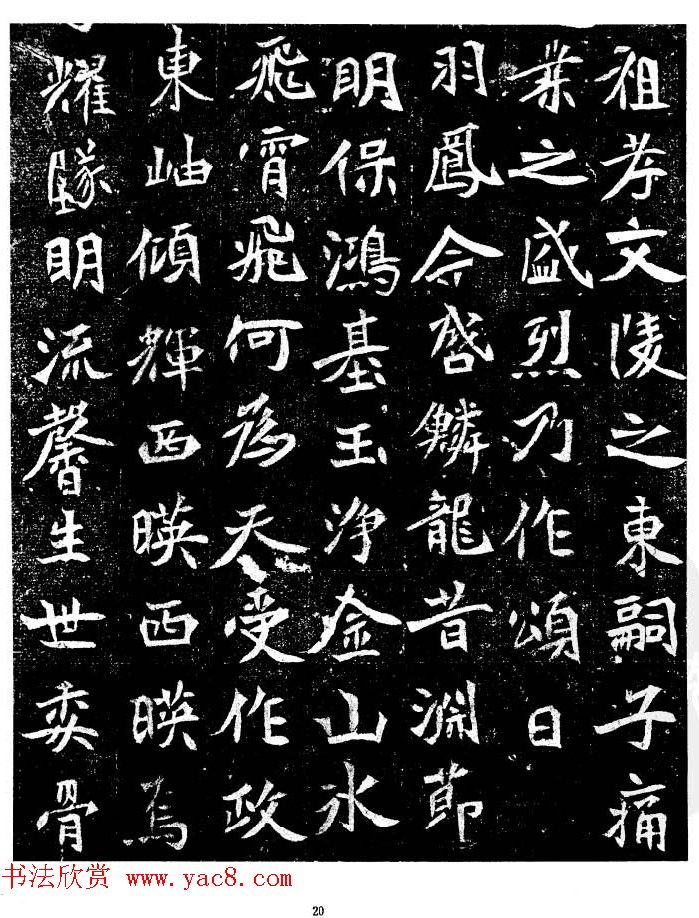 祖考文陵之東嗣子痛
業之盛烈乃作頌曰
羽鳳令啓鱗龍昔淵節
明保鴻基玉淨金山氷
飛霄飛何為天受作政
東岫傾輝西暎西暎焉
耀墜明流馨生世委骨
书法欣赏 www.yac8.com
20